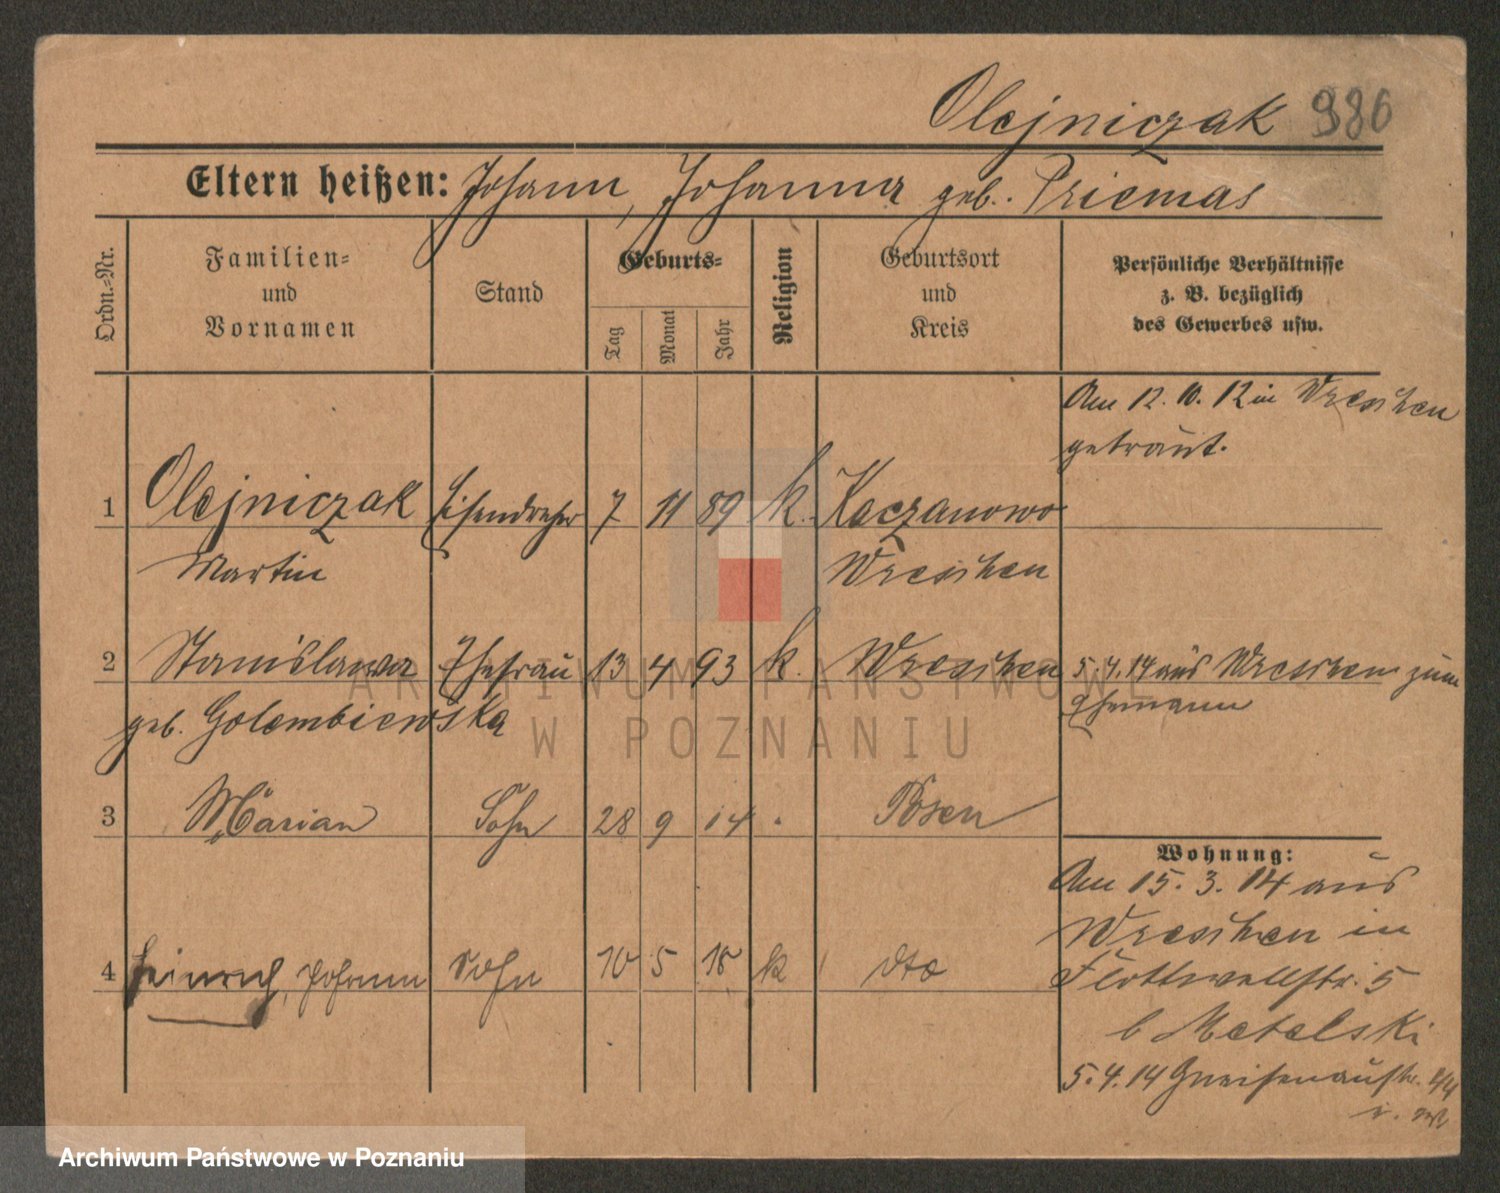 Olejniczak 986
Eltern heißen: Johann, Johanna geb. Priemas
Ordn.-Nr.
Familien- und Vornamen
Stand
Geburts-
Tag
Monat
Jahr
Religion
Geburtsort und Kreis
Persönliche Verhältnisse
z. B. bezüglich
des Gewerbes usw.
Am 12. 10. 12 in Wreschen
getraut.
1 Olejniczak Eisendreher 7 11 89 k. Kaczanowo
Martin Wreschen
2 Stanislawa Ehefrau 13 4 93 k. Wreschen 5.4.14 aus Wreschen zum
geb. Golembiewska Ehemann
3 Marian Sohn 28 9 14 Posen
Wohnung:
Am 15. 3. 14 aus
Wreschen in
4 Heinrich, Johann Sohn 10 5 18 k dto
Flottwellstr. 5
b Metelski
5.4.14 Gneisenaustr.
ARCHIWUM PAŃSTWOWE
W POZNANIU
Archiwum Państwowe w Poznaniu